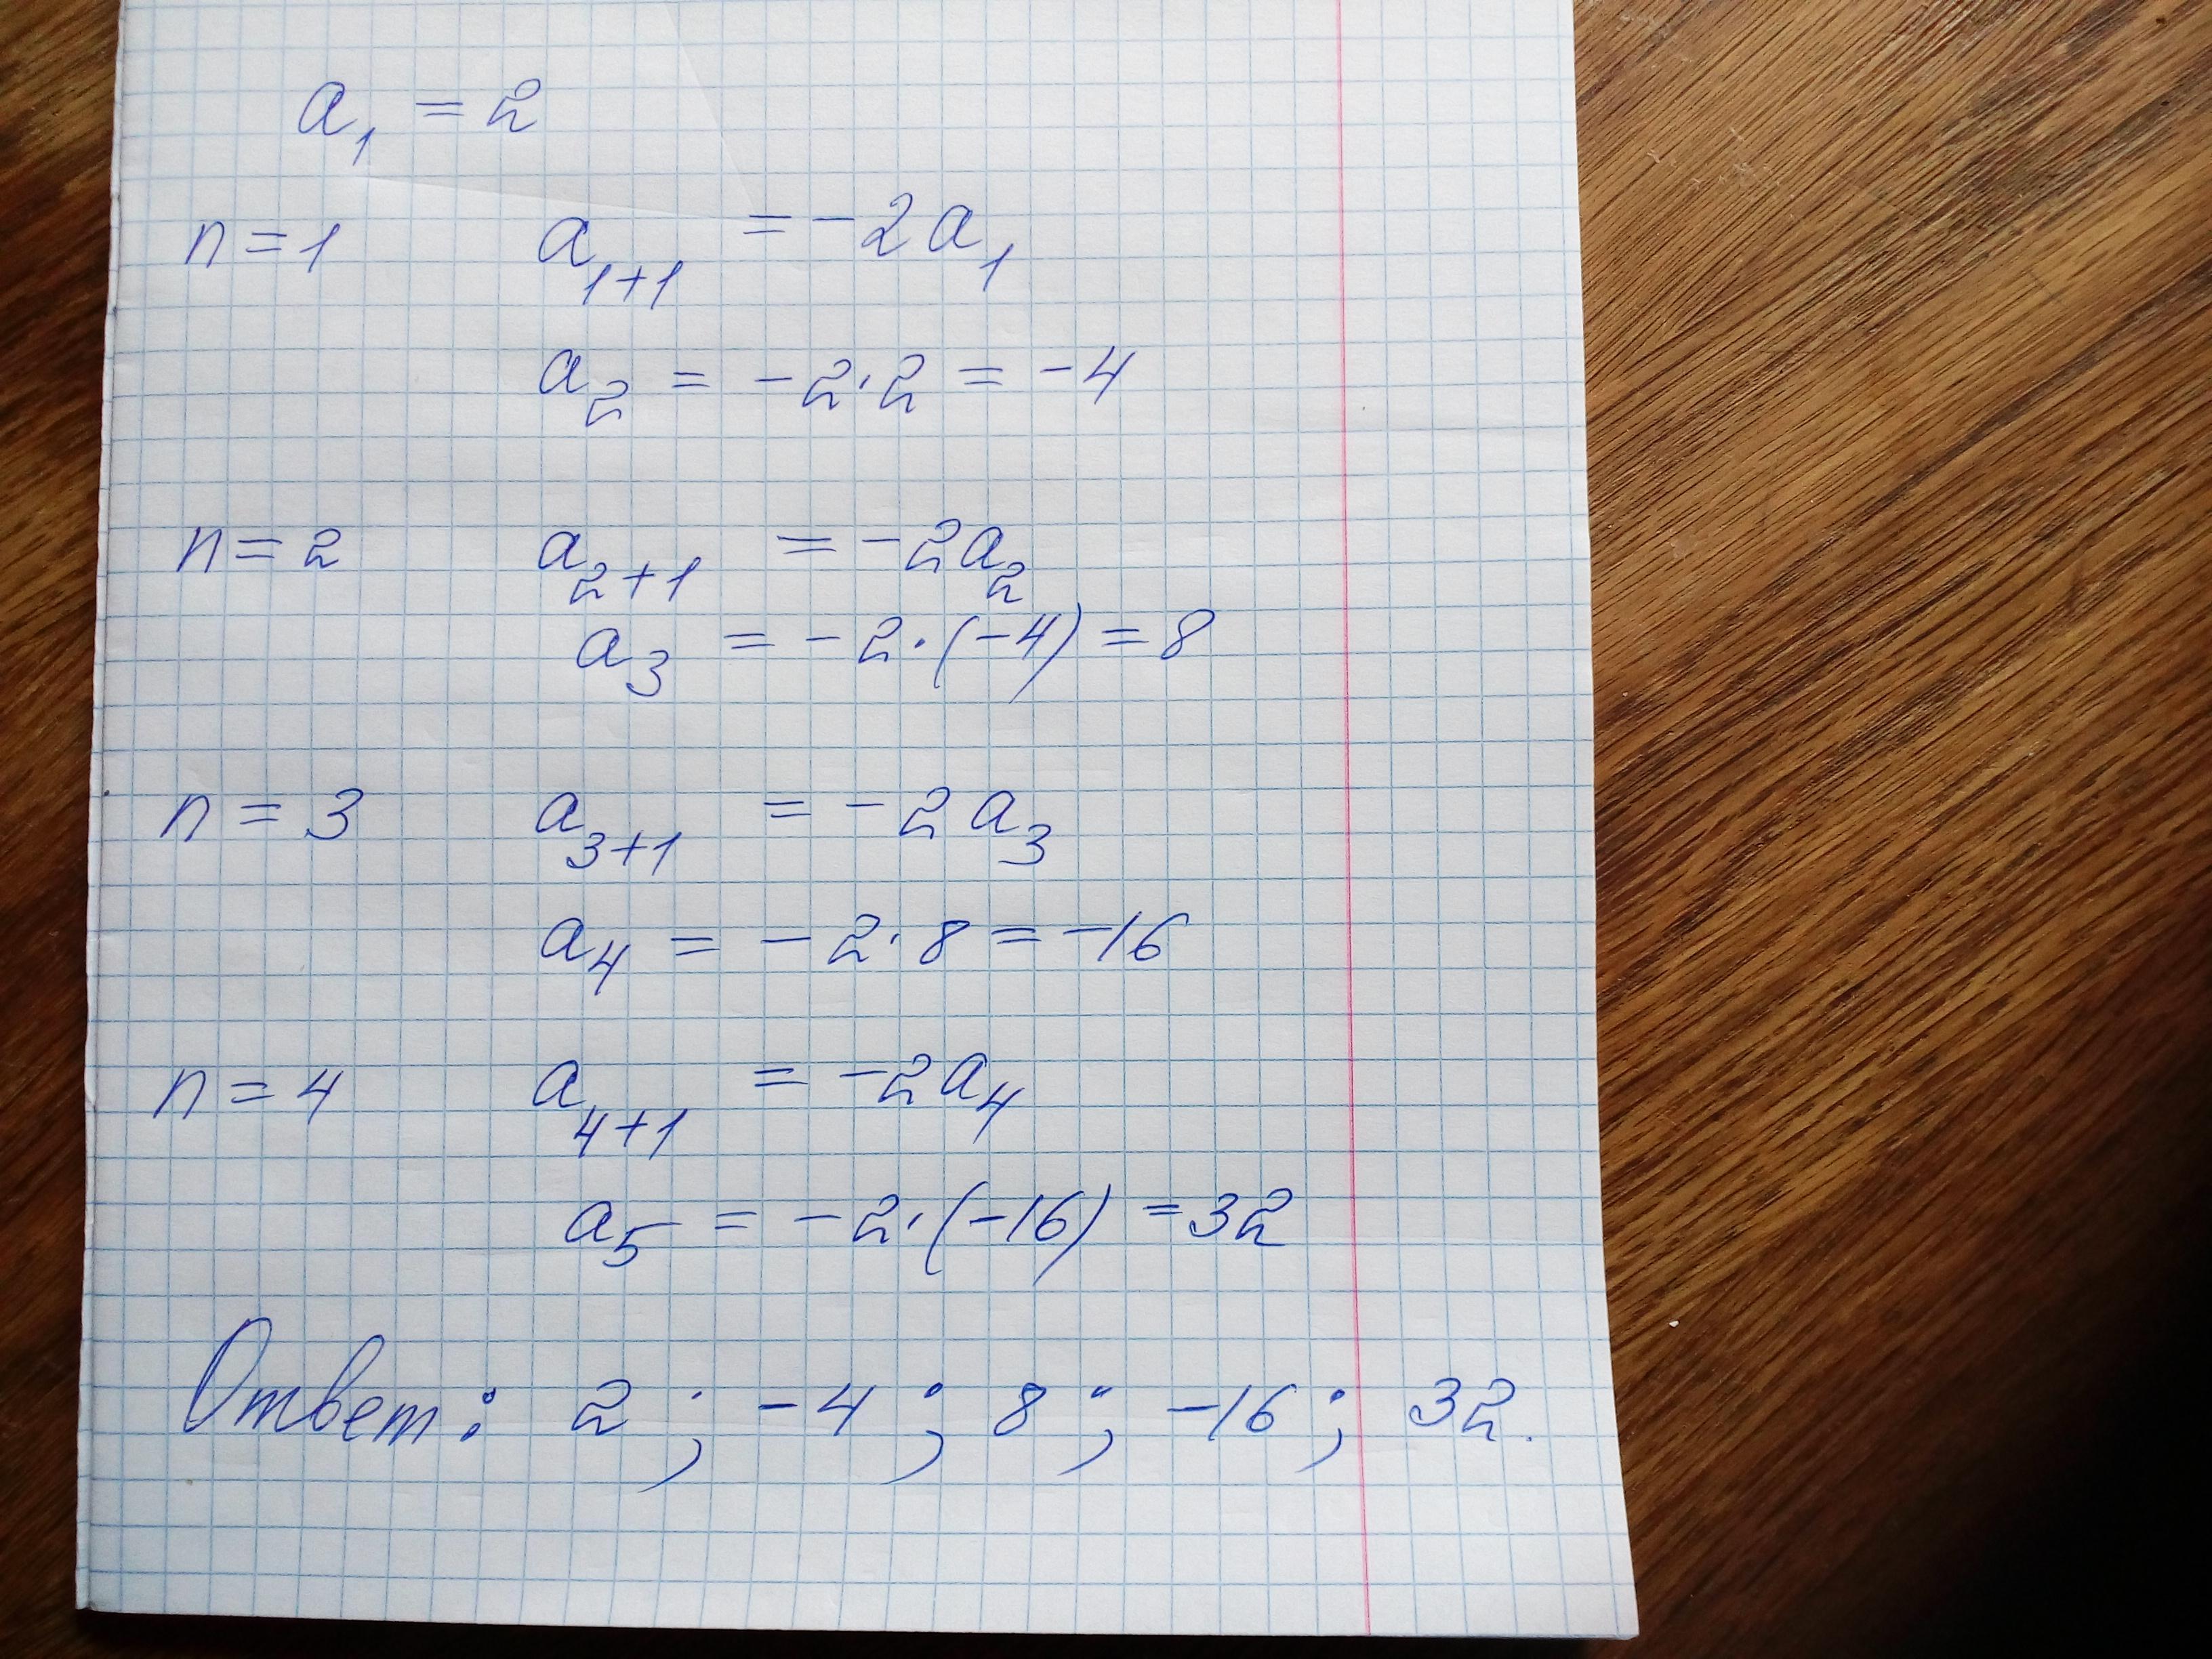 a₁ = 2
n = 1 a₁₊₁ = -2a₁
a₂ = -2·2 = -4
n = 2 a₂₊₁ = -2a₂
a₃ = -2·(-4) = 8
n = 3 a₃₊₁ = -2a₃
a₄ = -2·8 = -16
n = 4 a₄₊₁ = -2a₄
a₅ = -2·(-16) = 32
Ответ: 2; -4; 8; -16; 32.